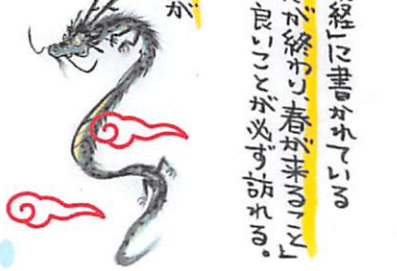 経」に書かれている
が終わり、春が来ること」
良いことが必ず訪れる。
が